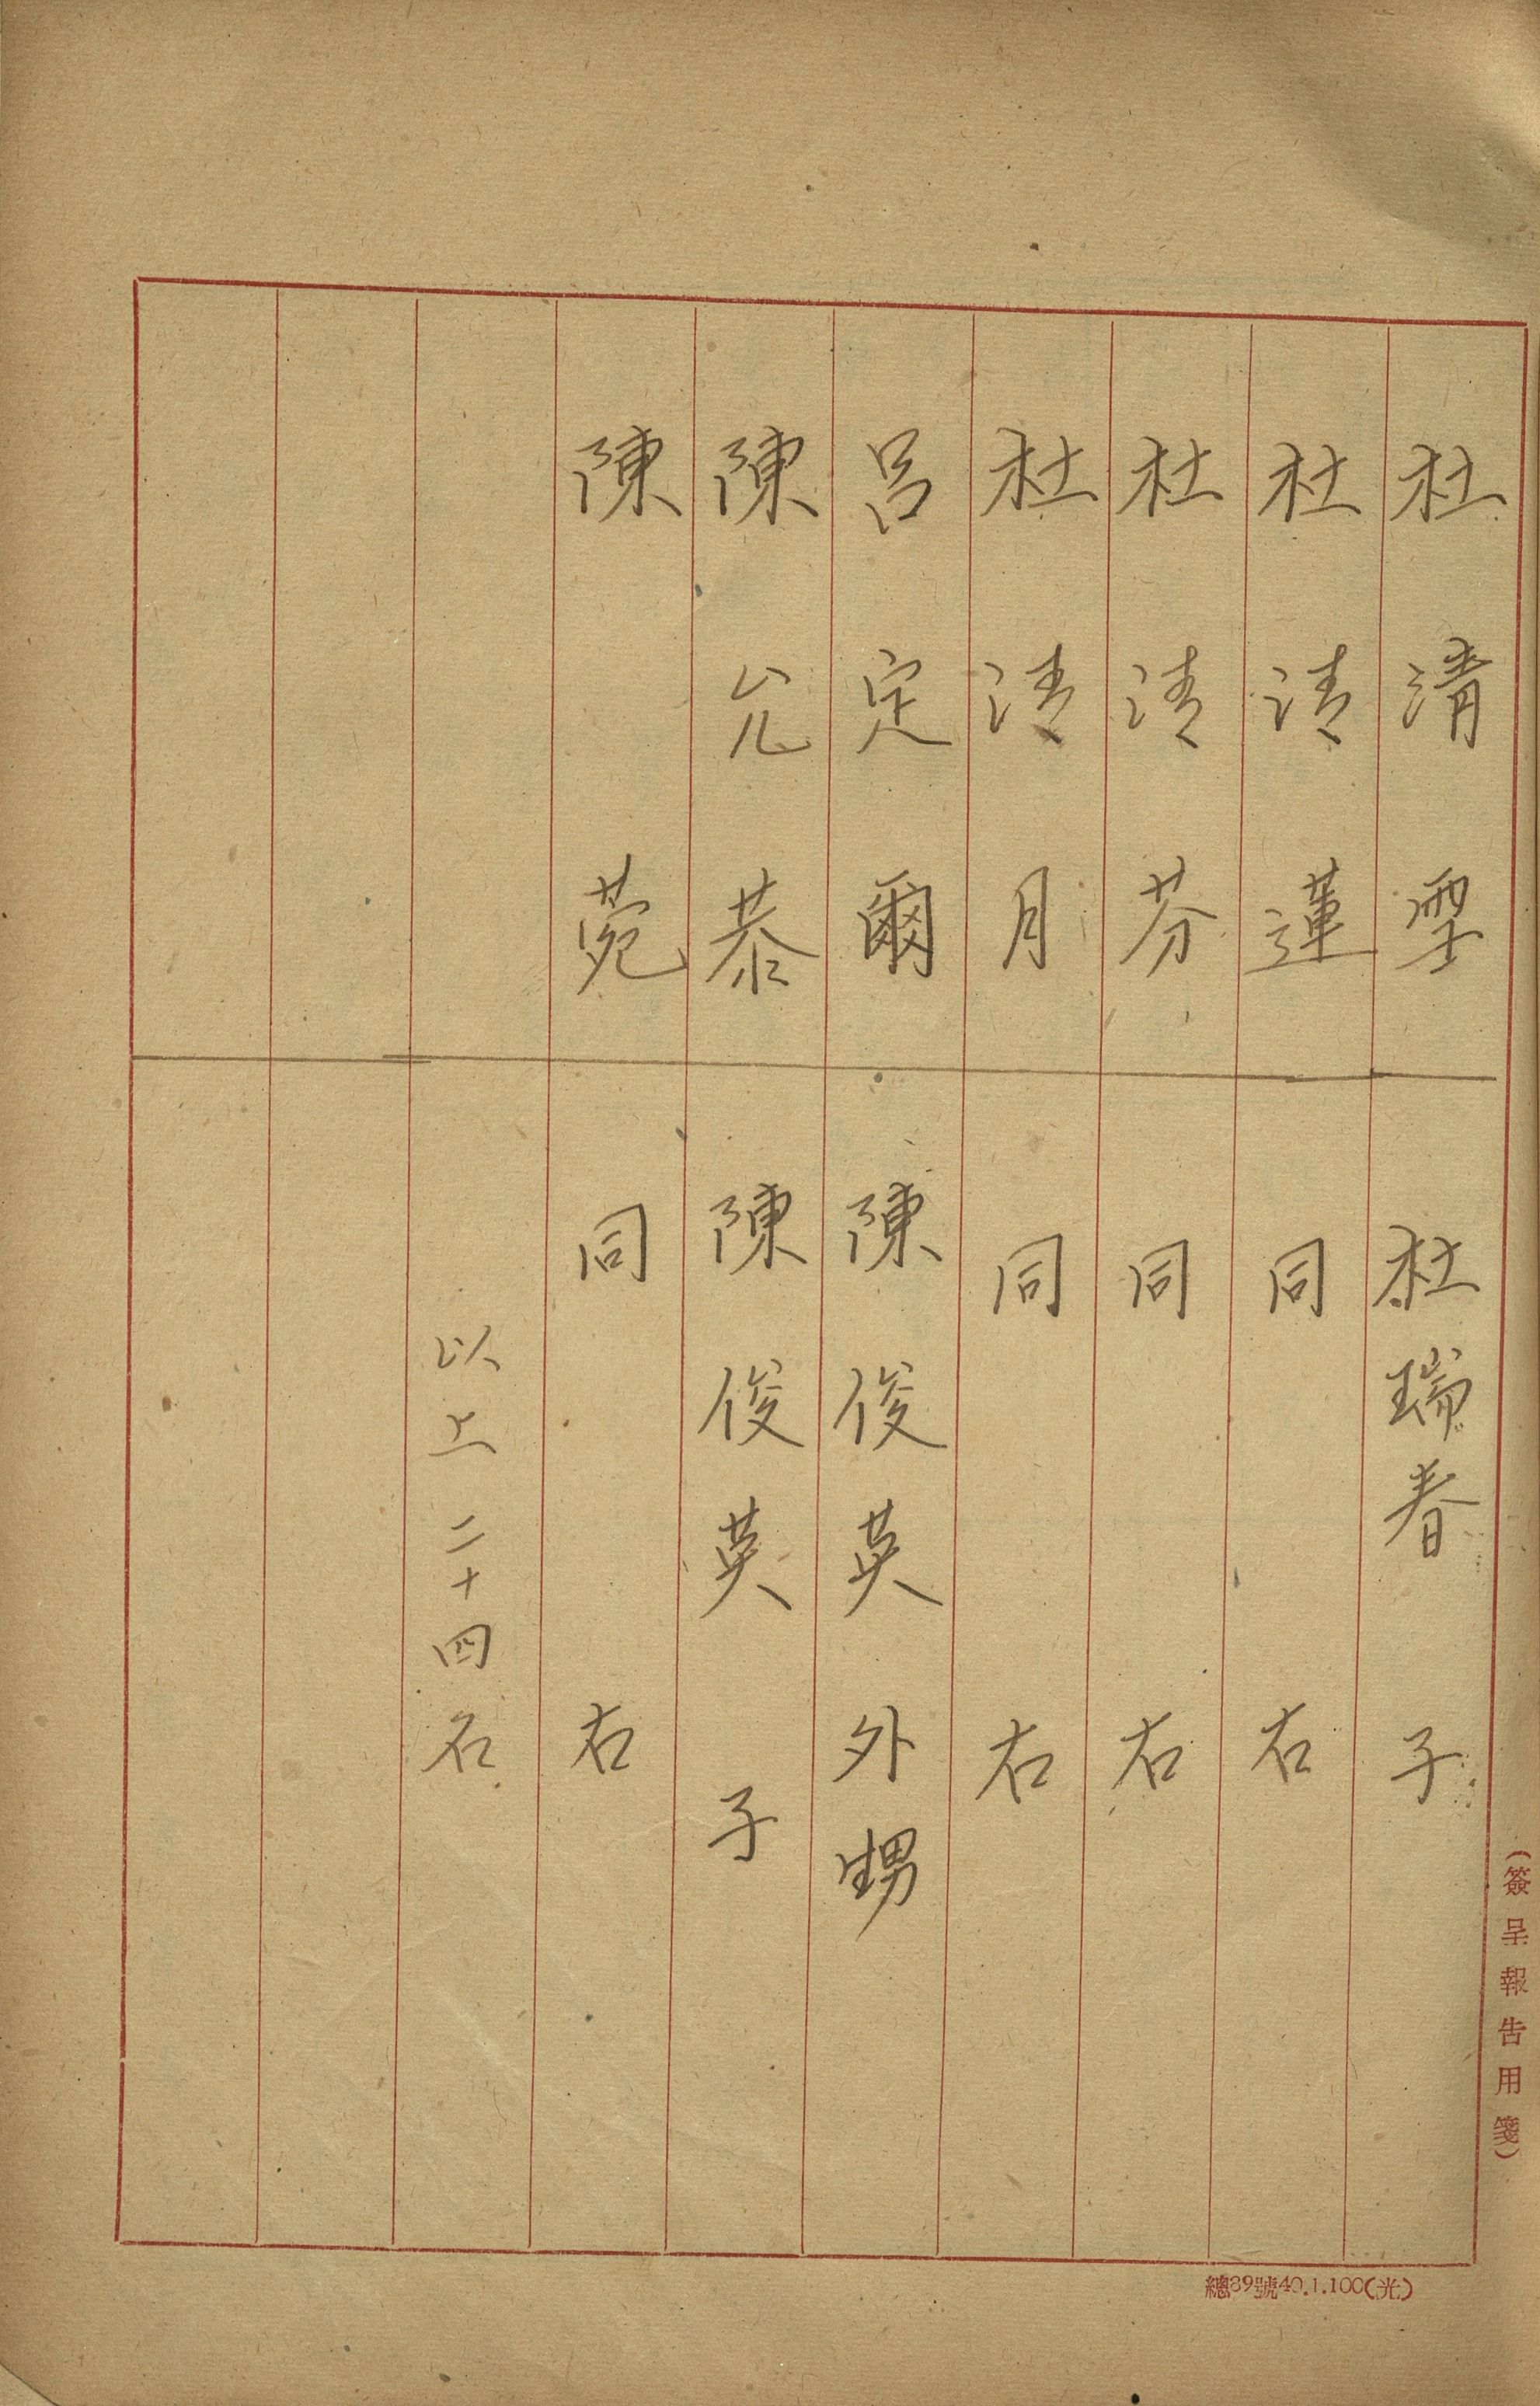 杜清堊 杜瑞春 子
杜清蓮 同 右
杜清芬 同 右
杜清月 同 右
呂定爾 陳俊英 外甥
陳允恭 陳俊英 子
陳菀 同 右
以上二十四名
(簽呈報告用箋)
總39號40.1.100(光)